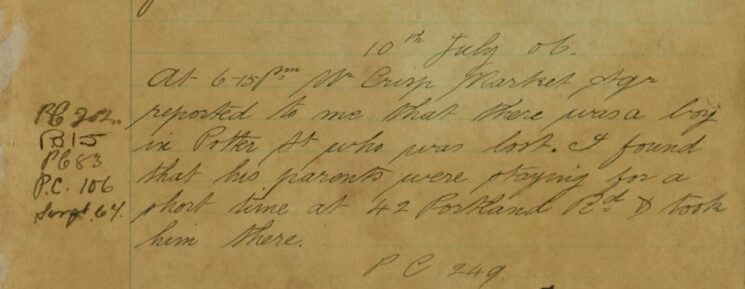 10th July 06.
At 6-15pm Mr Crisp Market Sqr
reported to me that there was a boy
in Potter St who was lost. I found
that his parents were staying for a
short time at 42 Portland Rd & took
him there.
PC 249
PC 202.
PC 15
PC 83
P.C. 106
Sergt. 64.